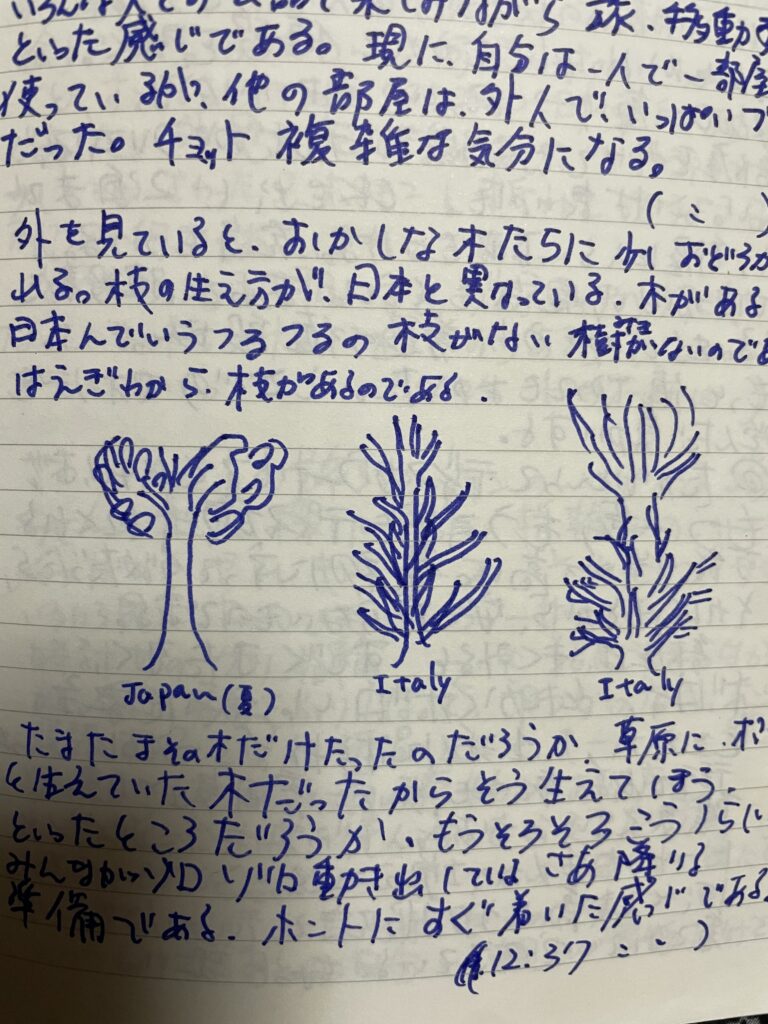 といった感じである。現に、自分は一人で一部屋
使っているが、他の部屋は、外人で、いっぱい
だった。チョット複雑な気分になる。
外を見ていると、おかしな木たちに少しおどろか
れる。枝の生え方が、日本と異なっている。木がある
日本んでいうつるつるの枝がない 樹幹がないのであ
はえぎわから、枝があるのである。
Japan(夏)
Italy
Italy
たまたまその木だけだったのだろうか、草原に、ポ
と生えていた木だったからそう生えてしまう、
といったところだろうか。もうそろそろこうしらに
みんながゾロゾロ動き出している さあ降りる
準備である。ホントにすぐ着いた感じである。
(12:37